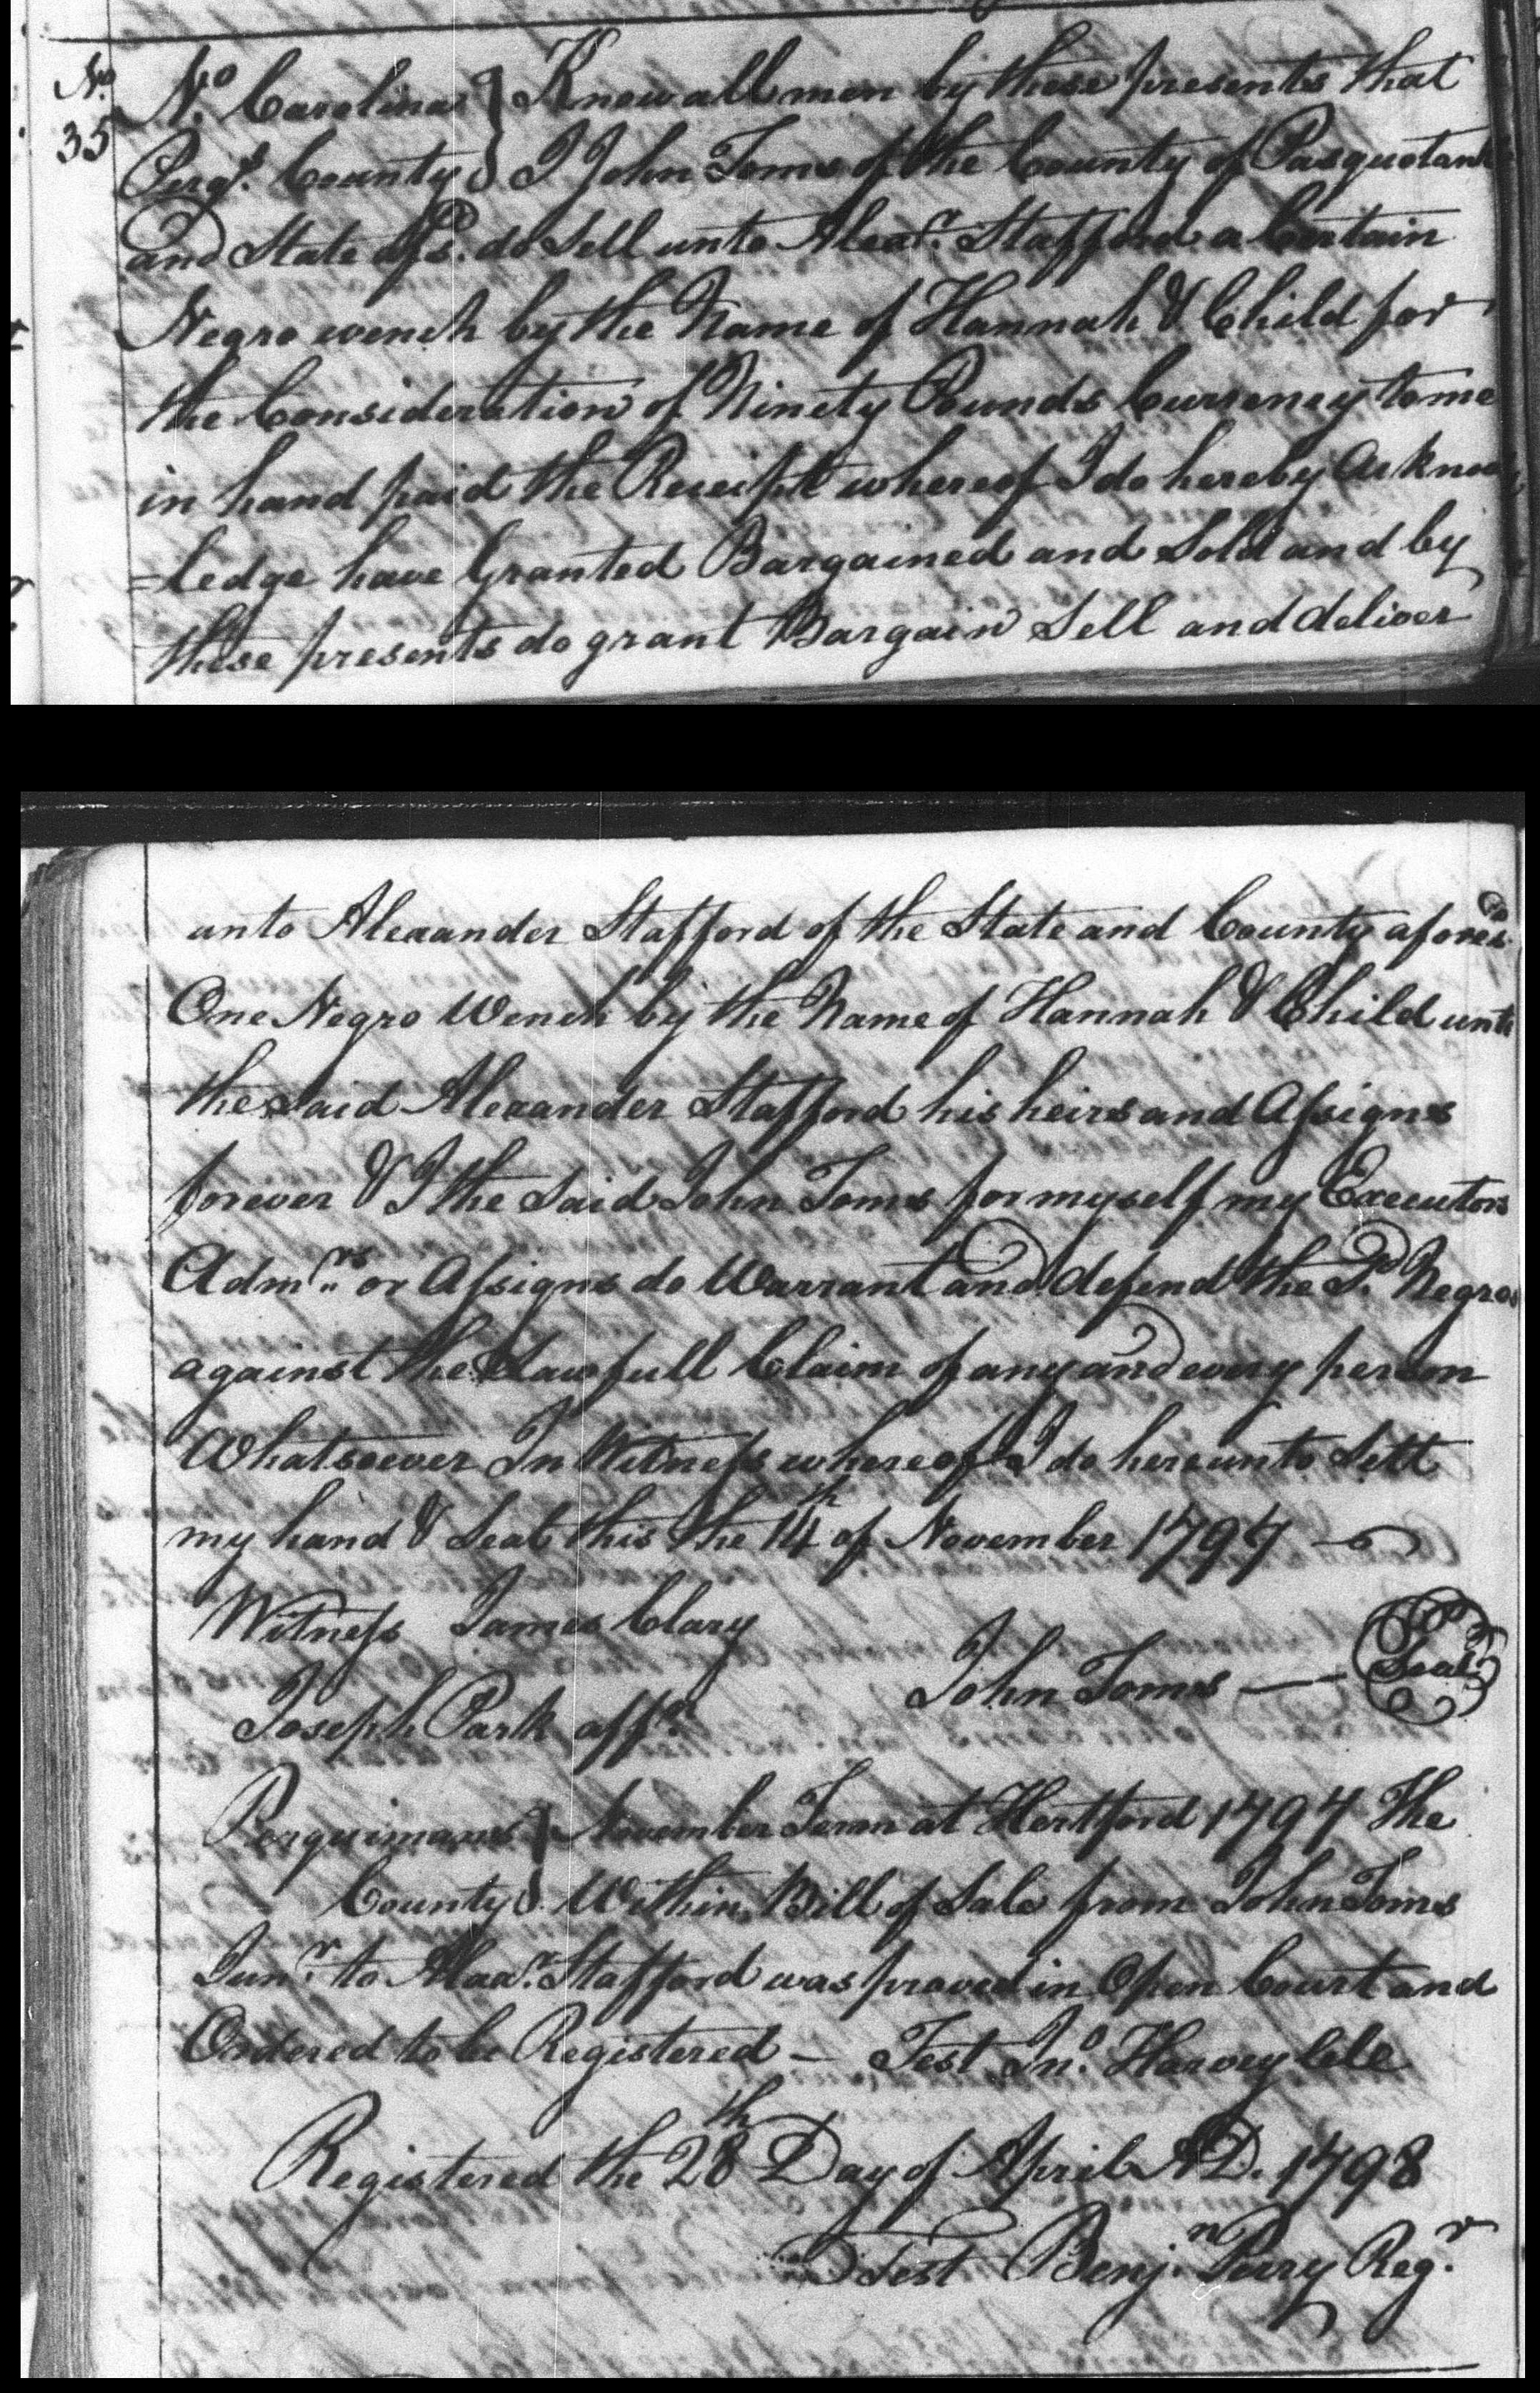 No. 35
No. Carolina } Know all men by these presents that
Perqs. County } I John Toms of the County of Pasquotank
and State afsd. do Sell unto Alexr. Stafford a Certain
Negro wench by the Name of Hannah & Child for
the Consideration of Ninety Pounds Currency to me
in hand paid the Receipt whereof I do hereby Acknow
=ledge have Granted Bargained and Sold and by
these presents do grant Bargain Sell and deliver
unto Alexander Stafford of the State and County aforesd.
One Negro Wench by the Name of Hannah & Child unto
the Said Alexander Stafford his heirs and Assigns
forever & I the Said John Toms for myself my Executors
Admrs. or Assigns do Warrant and defend the Sd. Negros
against the Lawfull Claim of any and every person
Whatsoever In Witness whereof I do hereunto Sett
my hand & Seal this the 14th of November 1797
Witness James Clary
John Toms — Seal
Joseph Park affr.
Perquimans } November Term at Hertford 1797 The
County } Within Bill of Sale from John Toms
Junr. to Alexr. Stafford was proved in Open Court and
Ordered to be Registered — Test Jno. Harvey Clk
Registered the 28th Day of April AD. 1798
Test Benjn. Perry Regr.